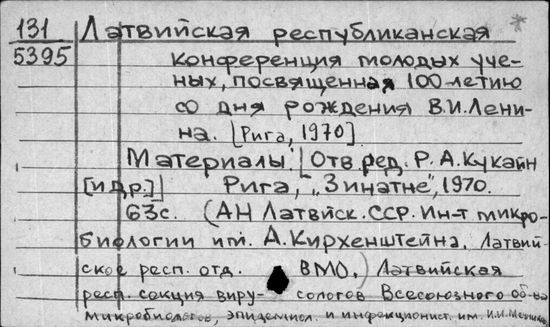 131 Латвийская республиканская
5395 конференция молодых уче-
ных, посвященная 100-летию
со дня рождения В.И.Лени-
на. [Рига, 1970].
Материалы. [Отв. ред. Р. А. Кукайн
[и др.]] Рига, „Зинатне”, 1970.
63с. (АН Латвийск. ССР. Ин-т микро-
биологии им. А. Кирхенштейна. Латвий-
ское респ. отд. ВМО.) Латвийская
респ. секция виру- сологов Всесоюзного об-ва
микробиологов, эпидемиол. и инфекционист. им. И.И.